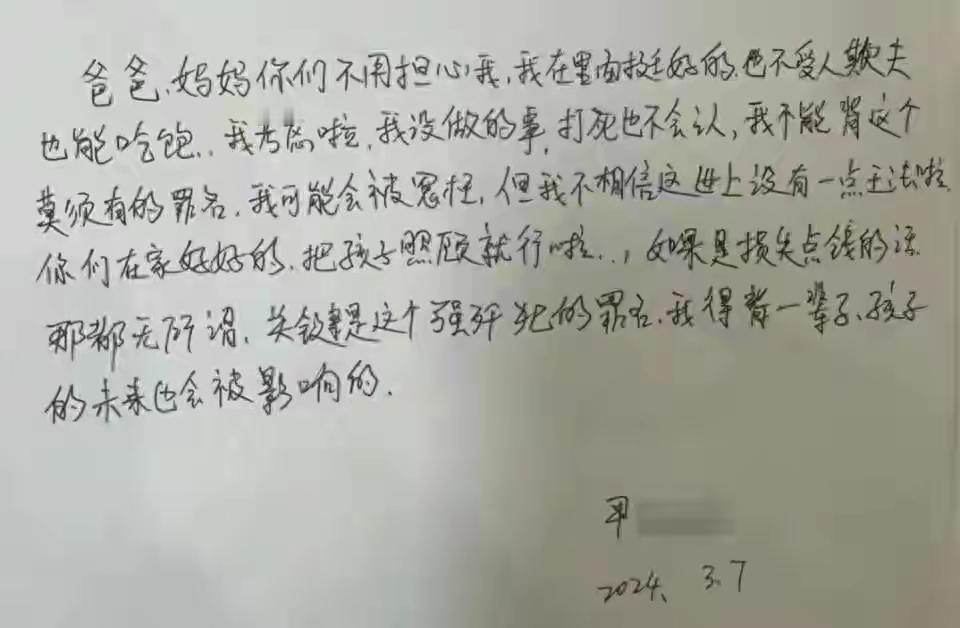 爸爸、妈妈你们不用担心我，我在里面挺好的.也不受人欺夫
也能吃饱..我考虑啦,我没做的事,打死也不会认,我不能背这个
莫须有的罪名.我可能会被冤枉,但我不相信这世上没有一点王法啦.
你们在家好好的.把孩子照顾就行啦..,如果是损失点钱的话
那都无所谓.关键是这个强奸犯的罪名.我得背一辈子、孩子
的未来也会被影响的.
2024、3.7